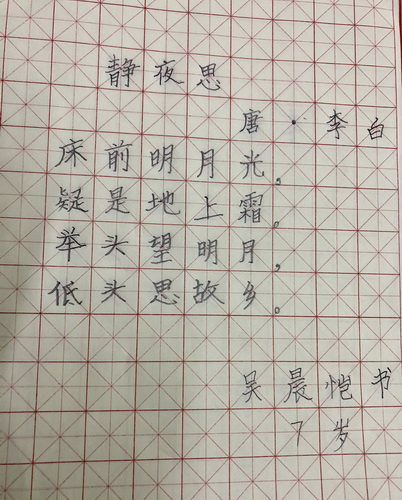 静夜思
唐·李白
床前明月光，
疑是地上霜。
举头望明月，
低头思故乡。
吴晨恺书
7岁